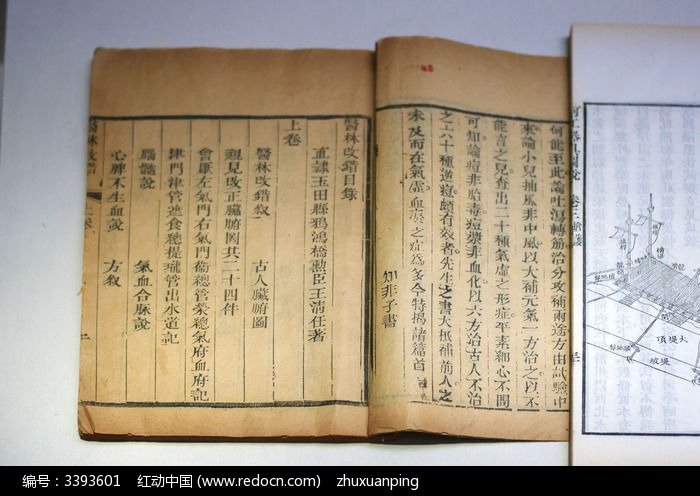 何能至此論吐瀉轉筋治分攻補兩途方由試驗中
來論小兒抽風非中風以大補元氣一方治之以不
能言之兒查出二十種氣虛之形症平素細心不問
可知論痘非胎毒痘漿非血化以六方治古人不治
之六十種逆痘頗有效者先生之書大抵補前人之
未及而在氣虛血瘀之症為多今特揭諸篇首
知非子書
醫林改錯目錄
直隸玉田縣鴉鴻橋勳臣王清任著
上卷
醫林改錯敘 古人臟腑圖
親見改正臟腑圖其二十四件
會厭左氣門右氣門衞總管榮總氣府血府記
津門津管遮食總提瓏管出水道記
腦髓說 氣血合脉說
心脾不生血說 方敘
醫林改錯 上卷 二
卷三
大堤頂
坡
编号：3393601 红动中国 (www.redocn.com) zhuxuanping